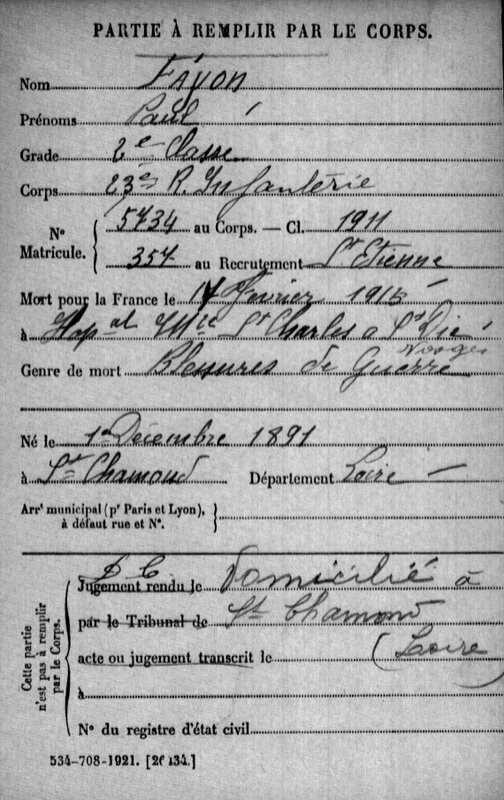 PARTIE À REMPLIR PAR LE CORPS.
Nom Fayon
Prénoms Paul
Grade 2e Classe
Corps 23e R. Infanterie
No Matricule. { 5434 au Corps. — Cl. 1911
354 au Recrutement St Etienne
Mort pour la France le 17 février 1915
à Hopal Mre St Charles à St Dié
Vosges
Genre de mort Blessures de Guerre
Né le 1er Décembre 1891
à St Chamond Département Loire
Arrt municipal (pr Paris et Lyon), à défaut rue et No. }
Cette partie n'est pas à remplir par le Corps.
D C
Jugement rendu le Domicilié à
par le Tribunal de St Chamond
acte ou jugement transcrit le (Loire)
à
No du registre d'état civil
534-708-1921. [26434.]